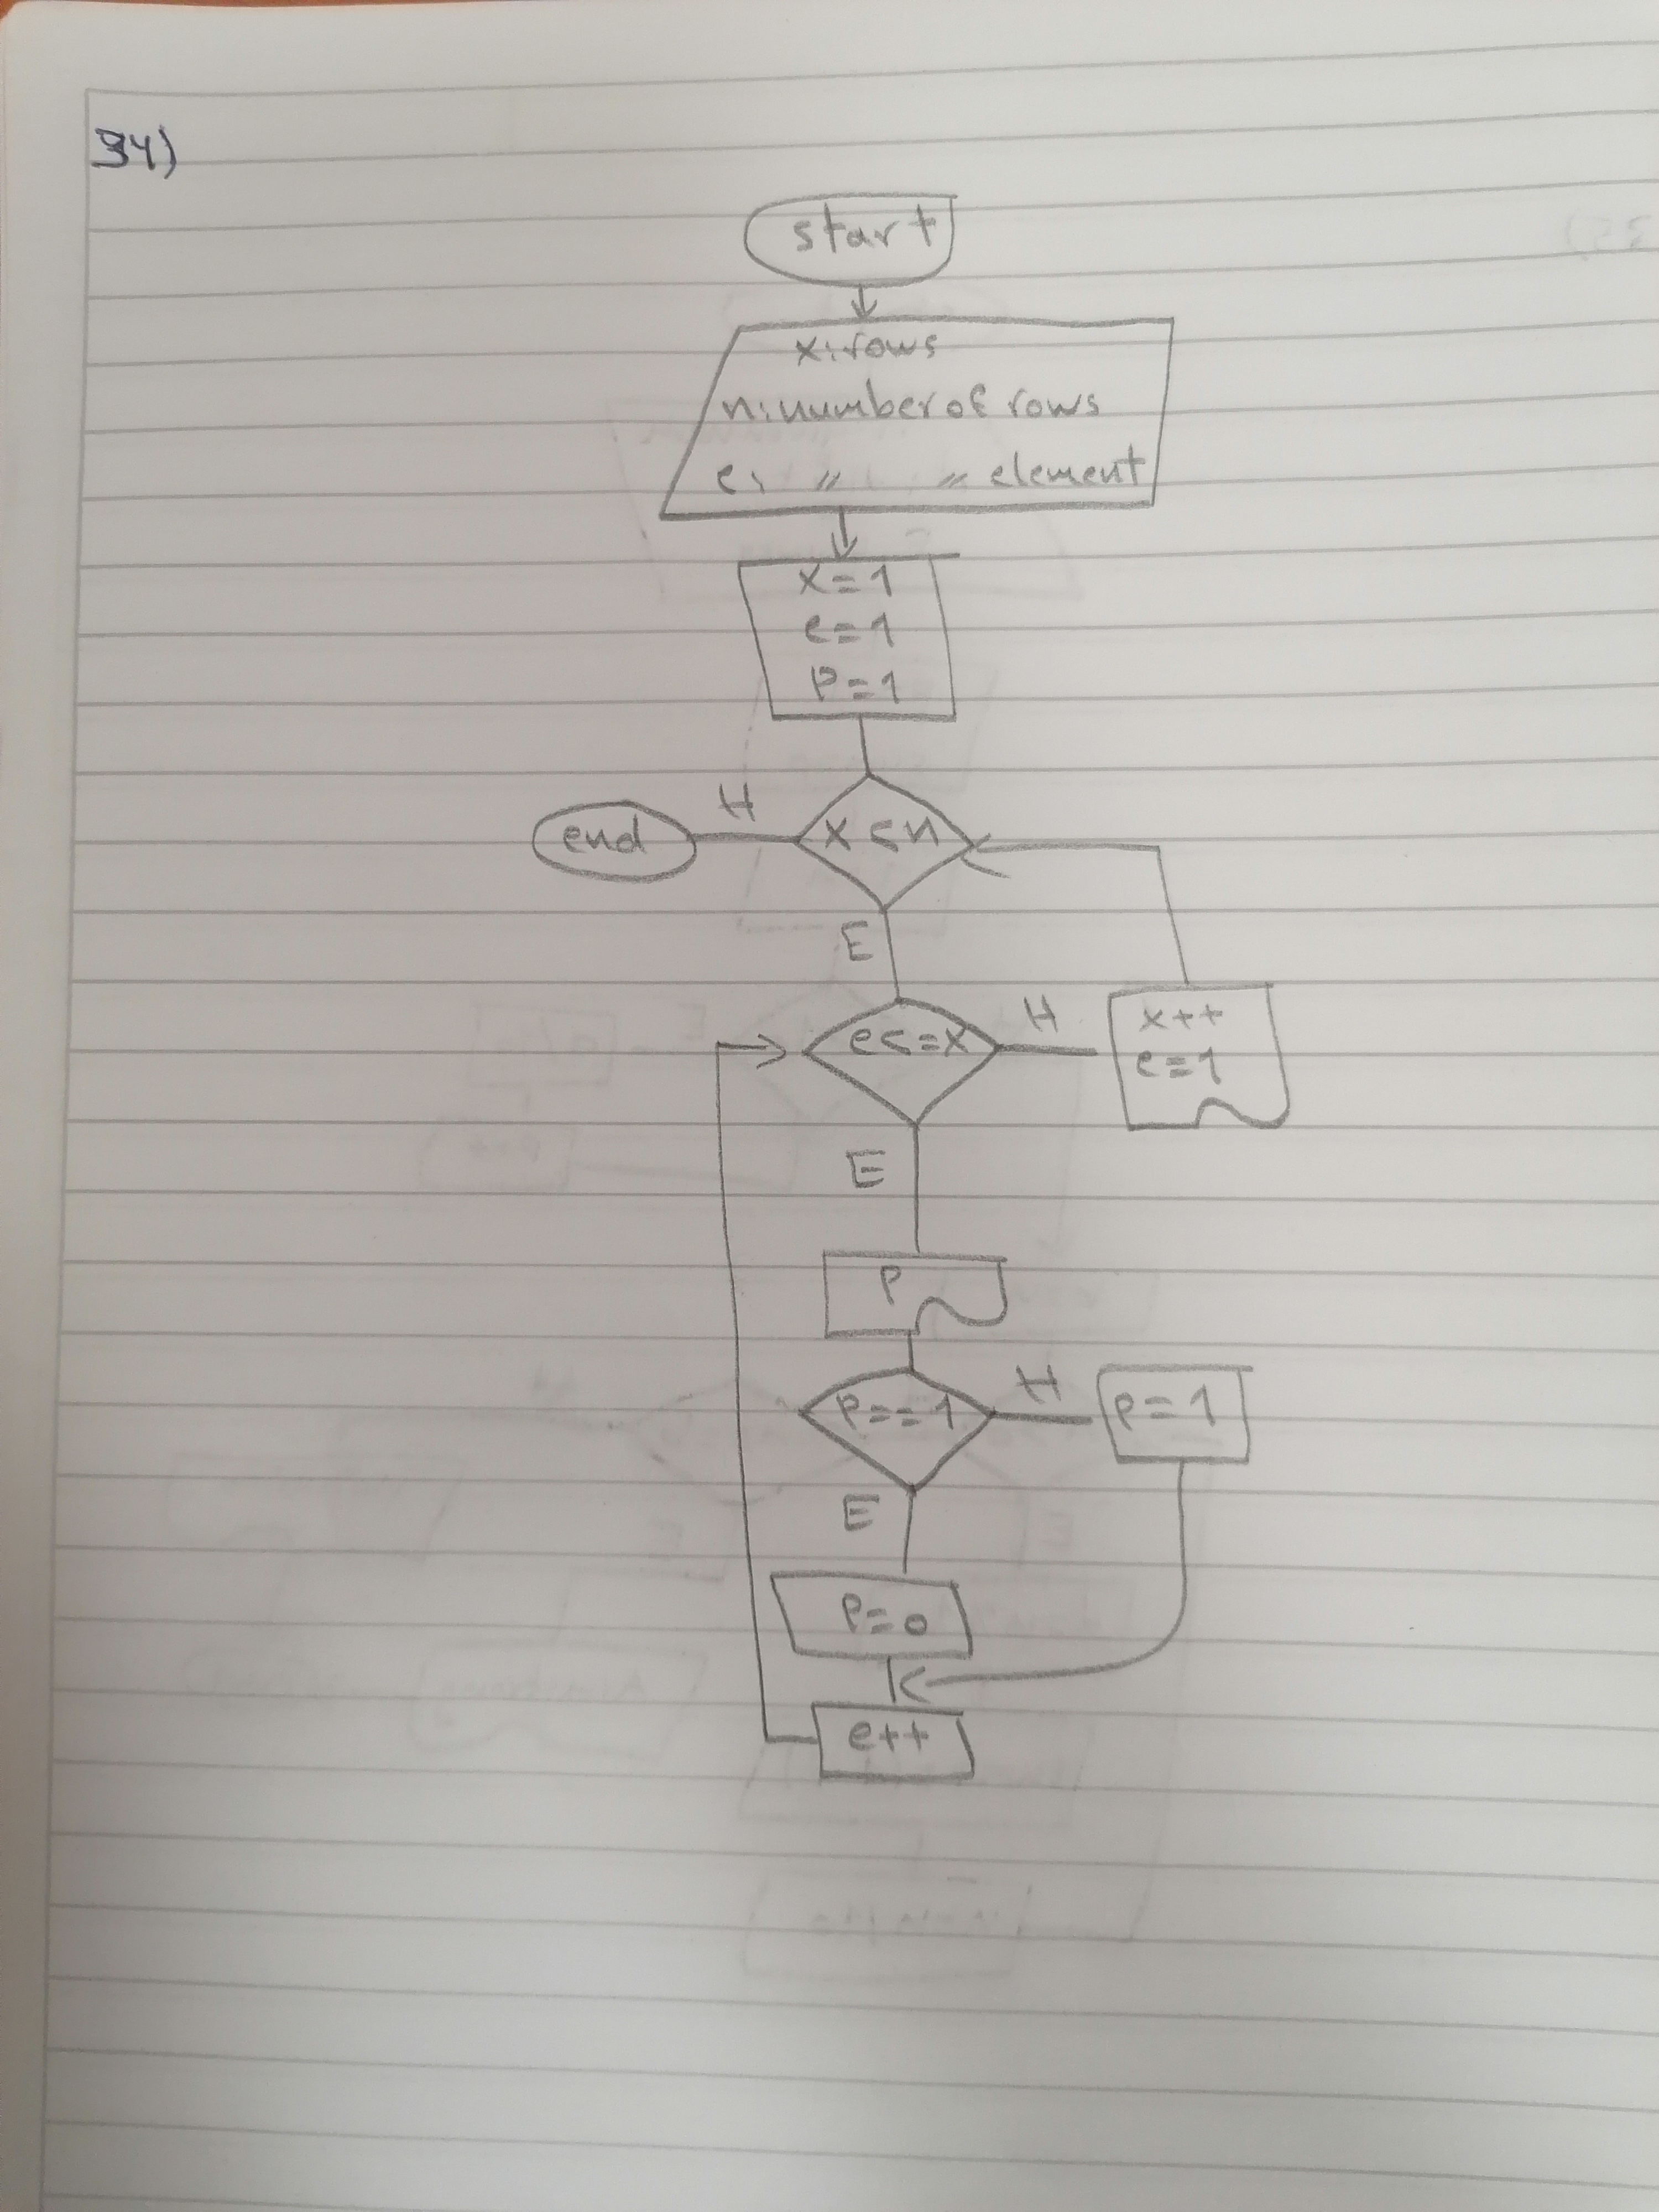 34)
start
x:rows
n:number of rows
e: " " element
x=1
e=1
P=1
H
end
x<n
E
e<=x
H
x++
e=1
E
P
P==1
H
P=1
E
P=0
e++